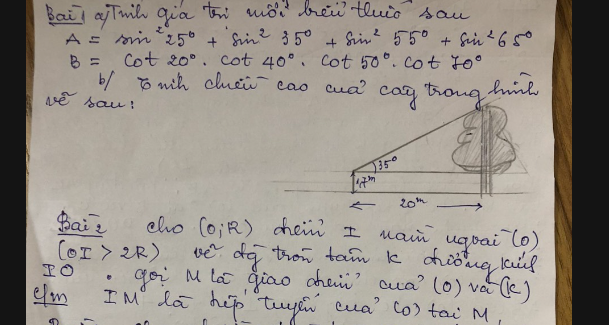 Bài 1 a/ Tính giá trị mỗi biểu thức sau
A = sin² 25° + sin² 35° + sin² 55° + sin² 65°
B = cot 20° . cot 40° . cot 50° . cot 70°
b/ Tính chiều cao của cây trong hình
vẽ sau:
35°
1,7m
20m
Bài 2 cho (O;R) điểm I nằm ngoài (O)
(OI > 2R) vẽ đg tròn tâm K đường kính
IO . gọi M là giao điểm của (O) và (K)
c/m IM là tiếp tuyến của (O) tại M